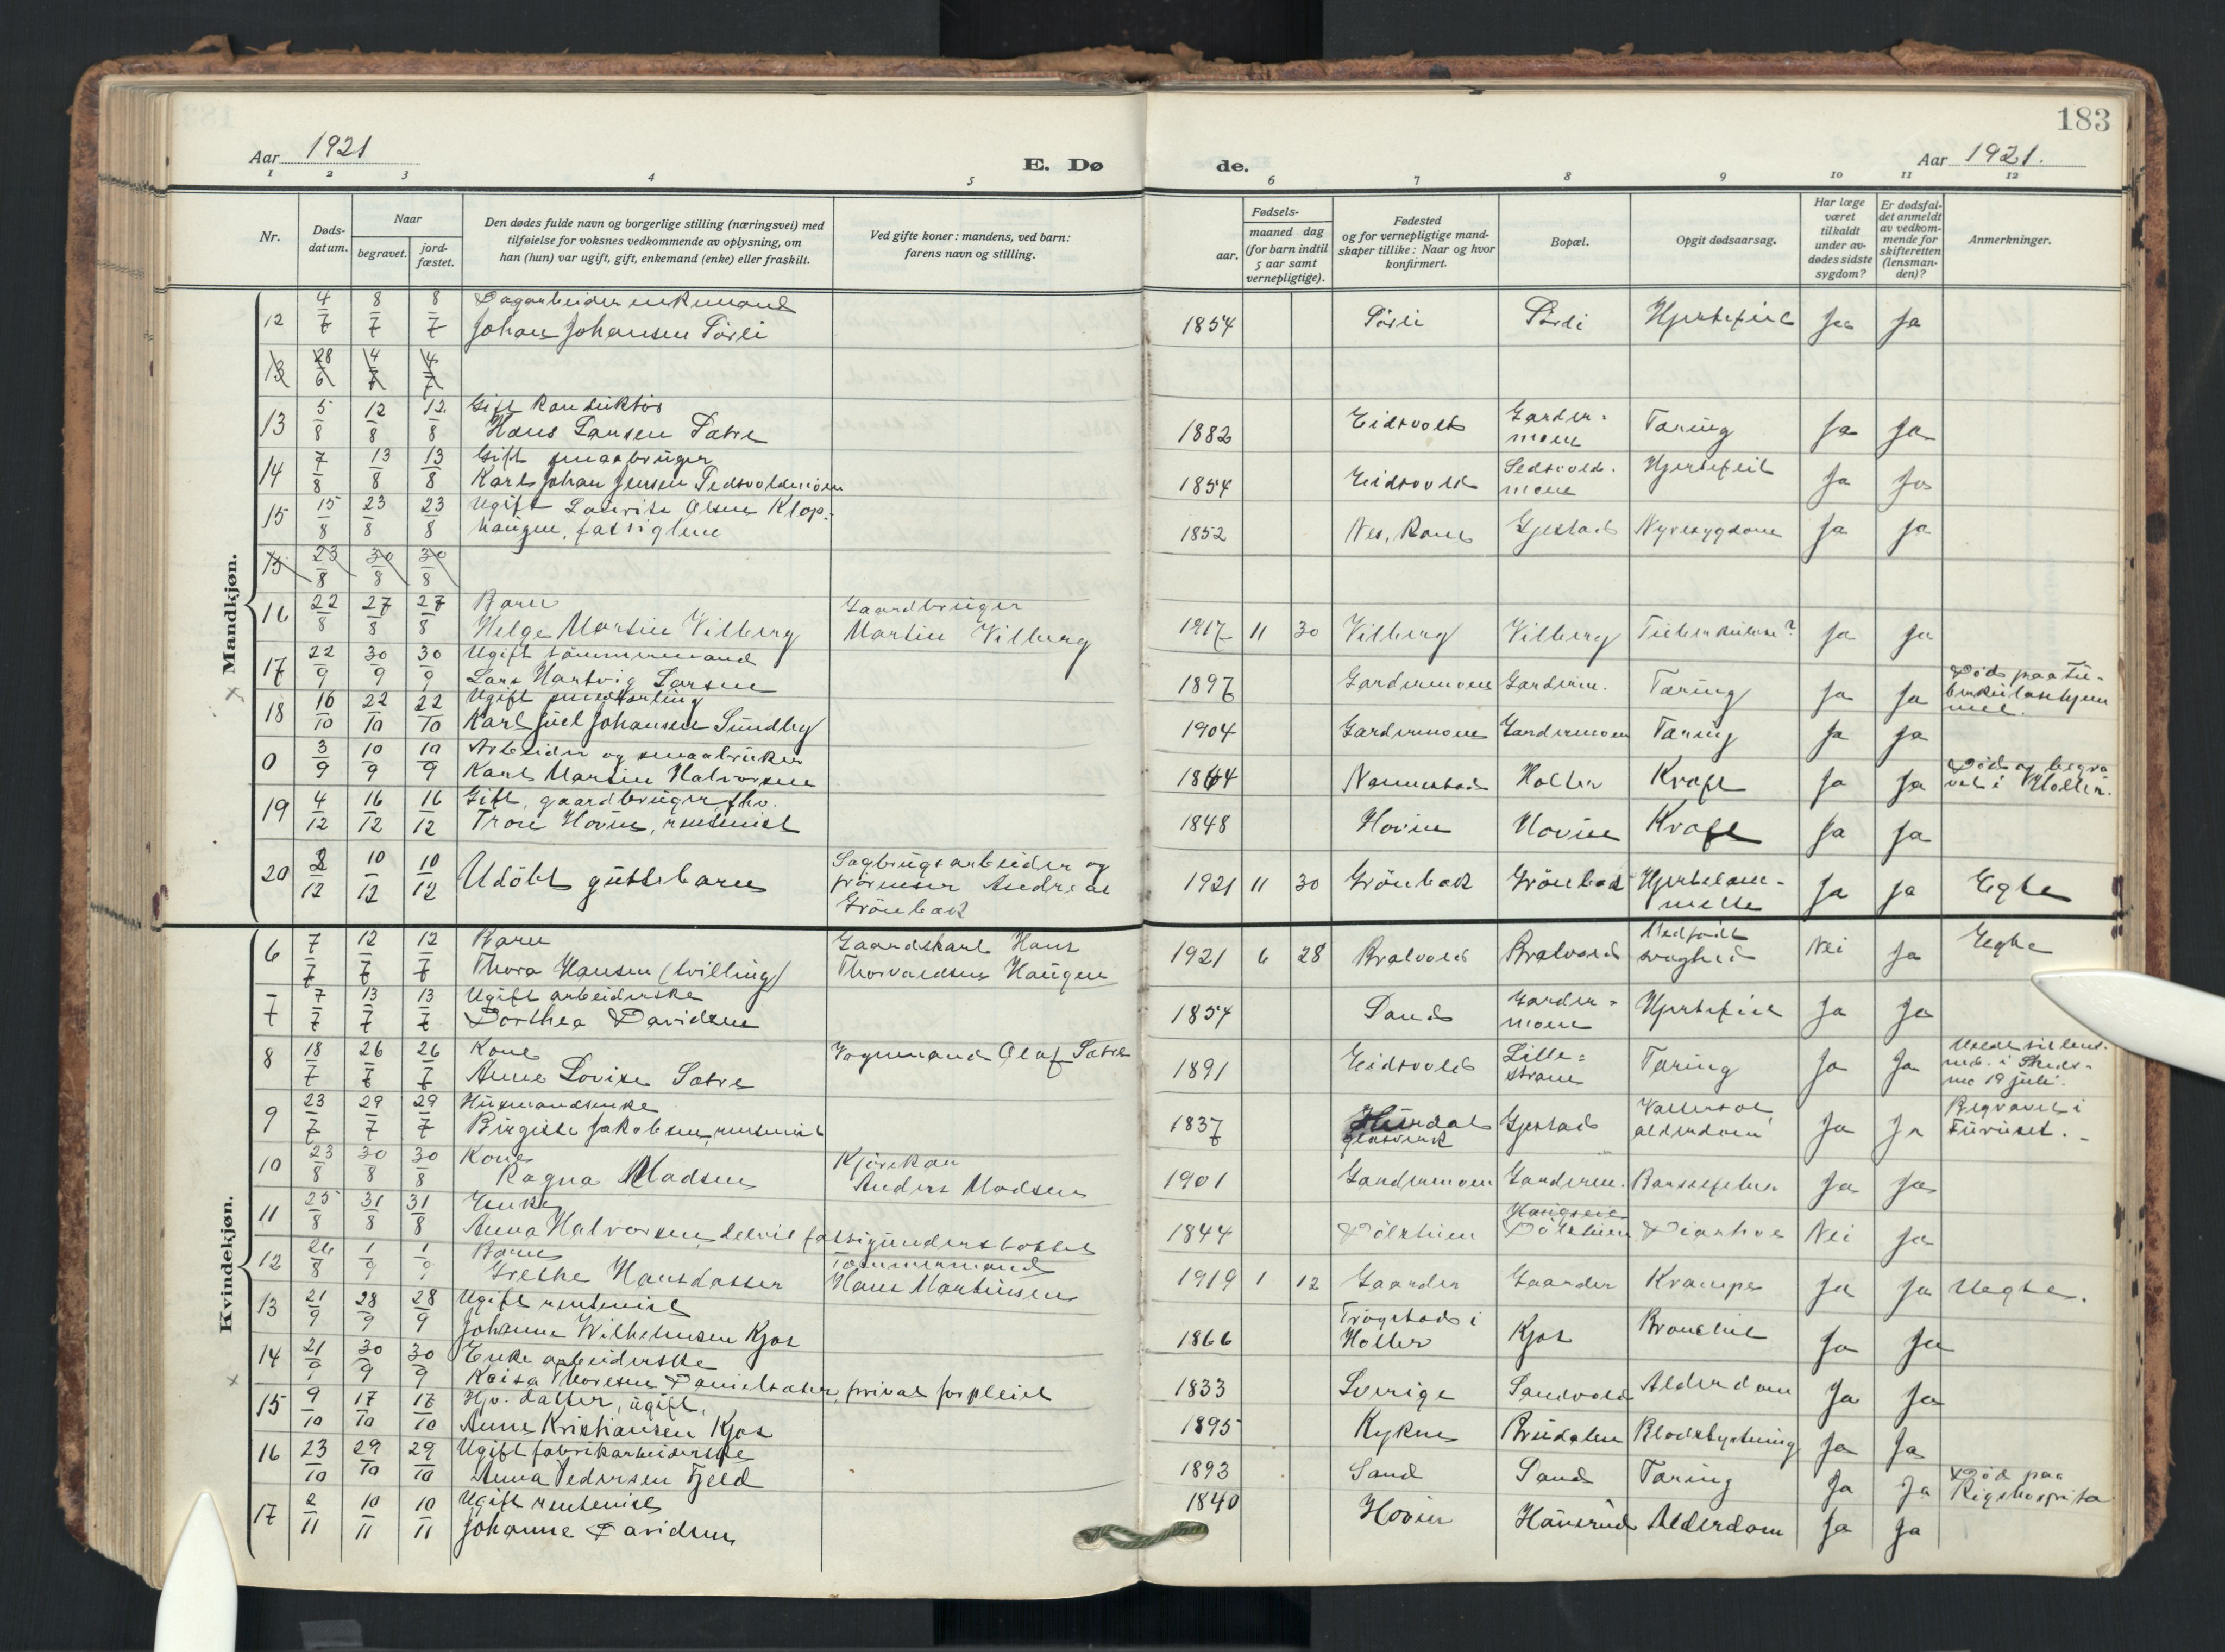 183
Aar 1921
E. Dø
de.
Aar 1921.
1 2 3 4 5 6 7 8 9 10 11 12
Nr.
Døds-
datum.
Naar
begravet.
jord-
fæstet.
Den dødes fulde navn og borgerlige stilling (næringsvei) med
tilføielse for voksnes vedkommende av oplysning, om
han (hun) var ugift, gift, enkemand (enke) eller fraskilt.
Ved gifte koner: mandens, ved barn:
farens navn og stilling.
Fødsels-
aar.
maaned dag
(for barn indtil
5 aar samt
vernepligtige).
Fødested
og for vernepligtige mand-
skaper tillike: Naar og hvor
konfirmert.
Bopæl.
Opgit dødsaarsag.
Har læge
været
tilkaldt
under av-
dødes sidste
sygdom?
Er dødsfal-
det anmeldt
av vedkom-
mende for
skifteretten
(lensman-
den)?
Anmerkninger.
Mandkjøn.
12 4/7 8/7 8/7 Dagarbeider enkemand
Johan Johansen Sörli 1854 Sörli Sörli Hjertefeil Ja Ja
13 28/6 4/7 4/7
13 5/8 12/8 12/8 Gift konduktör
Hans Larsen Sætre 1882 Eidsvold Garder-
moen Tæring Ja Ja
14 7/8 13/8 13/8 Gift smaabruger
Karl Johan Jensen Sedsvoldmoen 1854 Eidsvold Sedsvold-
moen Hjertefeil Ja Ja
15 15/8 23/8 23/8 Ugift Laurits Olsen Klop-
haugen, fattiglem 1852 Nes, Rom. Gjestad Nyresygdom Ja Ja
15 23/8 30/8 30/8
16 22/8 27/8 27/8 Barn
Helge Martin Vilberg
Gaardbruger
Martin Vilberg 1917 11 30 Vilberg Vilberg Tuberkulose? Ja Ja
17 22/9 30/9 30/9 Ugift tömmermand
Lars Hartvig Larsen 1897 Gardermoen Garderm. Tæring Ja Ja Död paa Tu-
berkulosehjem
met.
18 16/10 22/10 22/10 Ugift smedlærling
Karl Juel Johansen Sundby 1904 Gardermoen Gardermoen Tæring Ja Ja
0 3/9 10/9 10/9 Arbeider og smaabruker
Karl Martin Halvorsen 1864 Nannestad Holter Kræft Ja Ja Död og begra
vet i Holter.
19 4/12 16/12 16/12 Gift, gaardbruger, fhv.
Tron Hovin, rentenist 1848 Hovin Hovin Kræft Ja Ja
20 2/12 10/12 10/12 Udöbt guttebarn
Sagbrugsarbeider og
Andreas
Grönbæk 1921 11 30 Grönbæk Grönbæk Hjertelam-
melse Ja Ja Egte
Kvindekjøn.
6 7/7 12/7 12/7 Barn
Thora Hansen (tvilling)
Gaardskarl Hans
Thorvaldsen Haugen 1921 6 28 Bralvold Bralvold Medfödt
svaghed Nei Ja Uegte
7 7/7 13/7 13/7 Ugift arbeiderske
Dorthea Davidsen 1854 Sand Garder-
moen Hjertefeil Ja Ja
8 18/7 26/7 26/7 Kone
Anne Lovise Sætre
Vognmand Olaf Sætre 1891 Eidsvold Lille-
ström Tæring Ja Ja Meldt til lens-
md. i Skeds-
mo 19 juli.
9 23/7 29/7 29/7 Husmandsenke
Birgitte Jakobsen, rentenist 1837 Hurdal
glasverk Gjestad Vattersot
alderdom Ja Ja Begravet i
Furuset.
10 23/8 30/8 30/8 Kone
Ragna Madsen
Kjörekar
Anders Madsen 1901 Gardermoen Garderm. Barselfeber Ja Ja
11 25/8 31/8 31/8 Enke
Anna Halvorsen, delvis fattigunderstöttet 1844 Dölehien Haugseie
Dölehien Diarhoe Nei Ja
12 26/8 1/9 1/9 Barn
Grethe Hansdatter
Tømmermand
Hans Martinsen 1919 1 12 Gaarder Gaarder Krampe Ja Ja Uegte.
13 21/9 28/9 28/9 Ugift rentenist
Johanne Wilhelmsen Kjos 1866 Trögstad i
Holter Kjos Bronchit Ja Ja
14 21/9 30/9 30/9 Enke arbeiderske
Kaisa Thoresen Danielsæter, privat forpleiet 1833 Sverige Sandvold Alderdom Ja Ja
15 9/10 17/10 17/10 Hjv. datter, ugift,
Anne Kristiansen Kjos 1895 Kykne Brudalen Blodstyrtning Ja Ja
16 23/10 29/10 29/10 Ugift fabrikarbeiderske
Anna Pedersen Fjeld 1893 Sand Sand Tæring Ja Ja Död paa
Rigshospita
17 2/11 10/11 10/11 Ugift rentenist
Johanne Davidsen 1840 Hovin Hauerud Alderdom Ja Ja